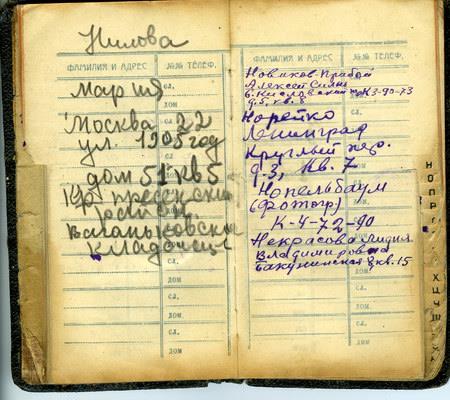 Нилова
ФАМИЛИЯ И АДРЕС №№ ТЕЛЕФ.
Мария
СЛ.
ДОМ
Москва 22
ул. 1905 год
дом 51 кв 5
Кр. пресненски
район
Ваганьковски
кладбище
СЛ.
ДОМ
СЛ.
ДОМ
СЛ.
ДОМ
ФАМИЛИЯ И АДРЕС №№ ТЕЛЕФ.
Новиков-Прибой
Алексей Силыч
Б. Кисловский К3-90-73
д. 5, кв. 8
Норейко
Ленинград
Круглый пер.
д-3, кв. 7
Нопельбаум
(Фотогр)
К-4-72-90
Некрасова Лидия
Владимировна
Бакунинская 8 кв. 15
ДОМ
СЛ.
ДОМ
СЛ.
ДОМ
СЛ.
ДОМ
Н
О
П
Р
Х
Ц
Ч
Ш